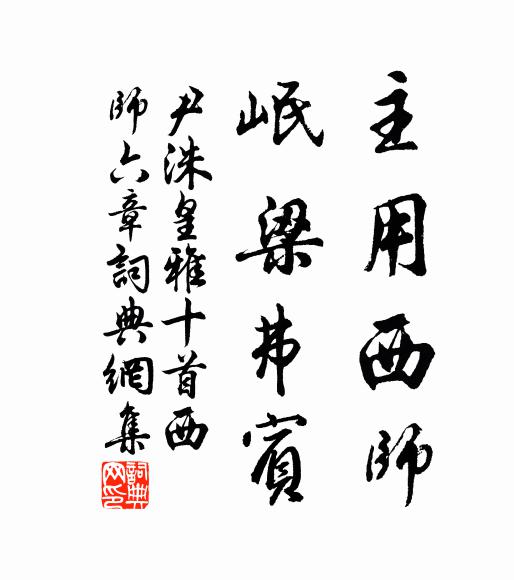 主用西師
岷梁弗賓
尹洙皇雅十首西
師六章詞典網集
詞典网印